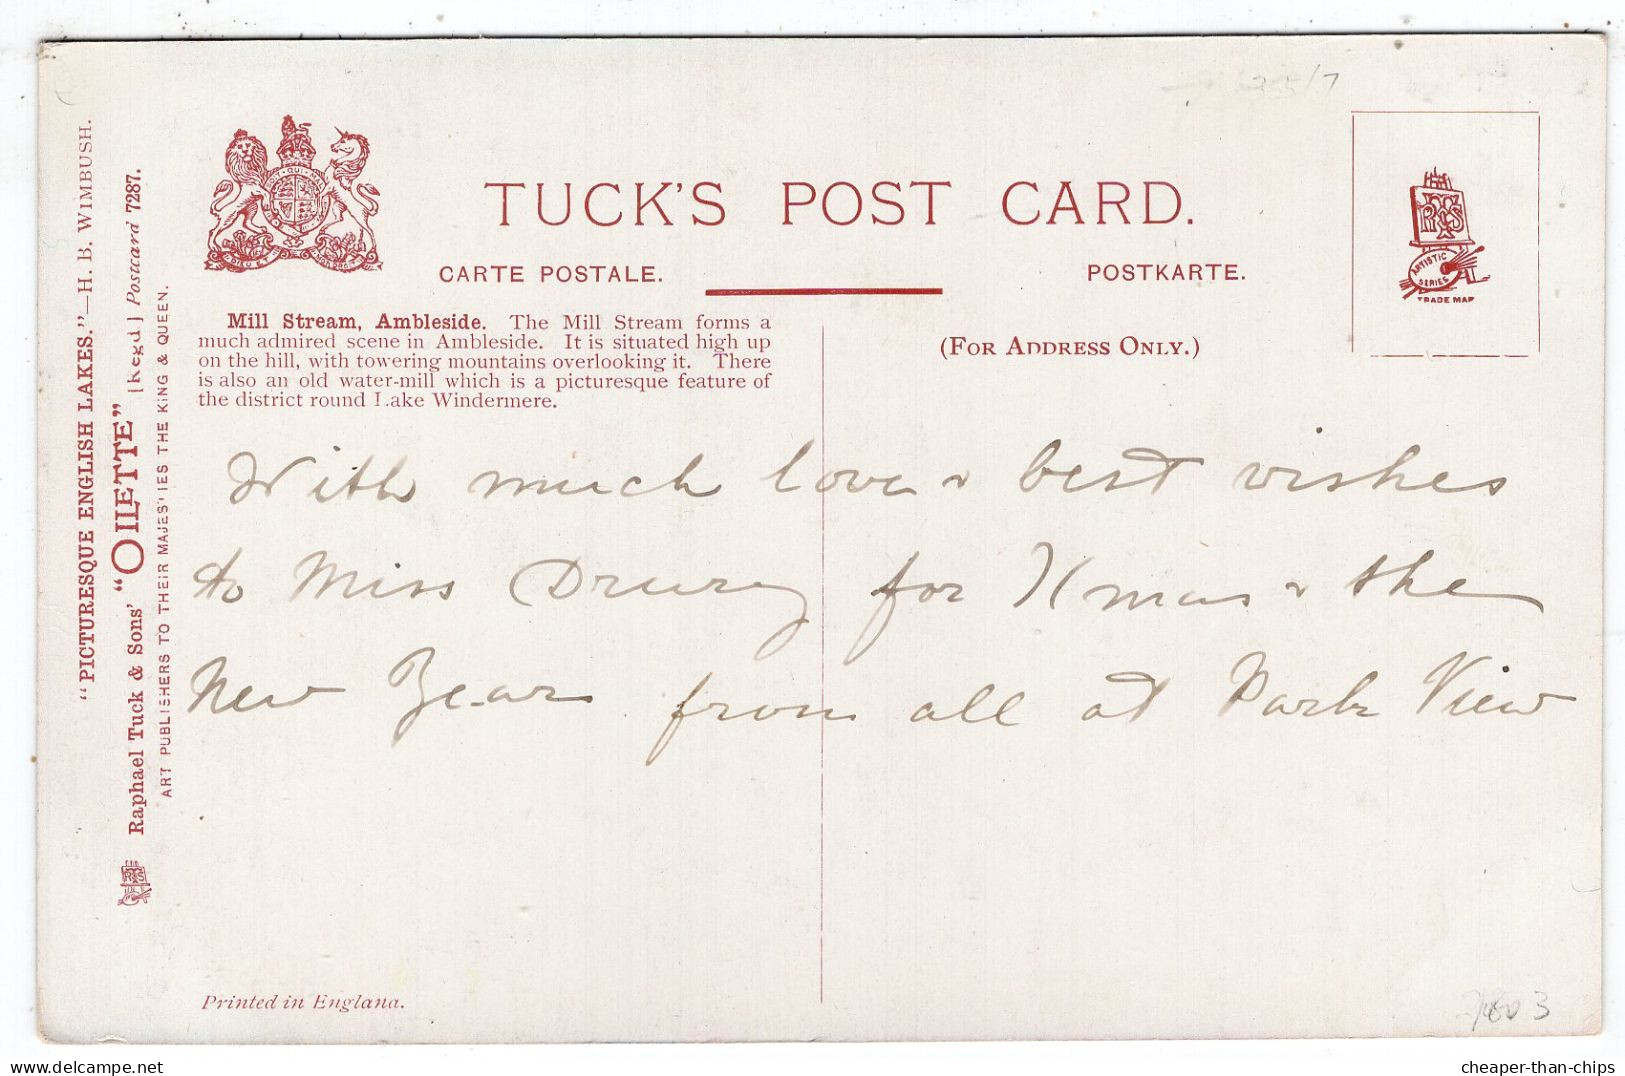 "PICTURESQUE ENGLISH LAKES."—H. B. WIMBUSH.
Raphael Tuck & Sons' "OILETTE" [Regd] Postcard 7287.
ART PUBLISHERS TO THEIR MAJESTIES THE KING & QUEEN.
TUCK'S POST CARD.
CARTE POSTALE.
POSTKARTE.
(FOR ADDRESS ONLY.)
RTS
ARTISTIC
SERIES
TRADE MAR
Mill Stream, Ambleside. The Mill Stream forms a
much admired scene in Ambleside. It is situated high up
on the hill, with towering mountains overlooking it. There
is also an old water-mill which is a picturesque feature of
the district round Lake Windermere.
With much love & best wishes
to Miss Drury for Xmas & the
New Year from all at Park View
Printed in England.
cheaper-than-chips